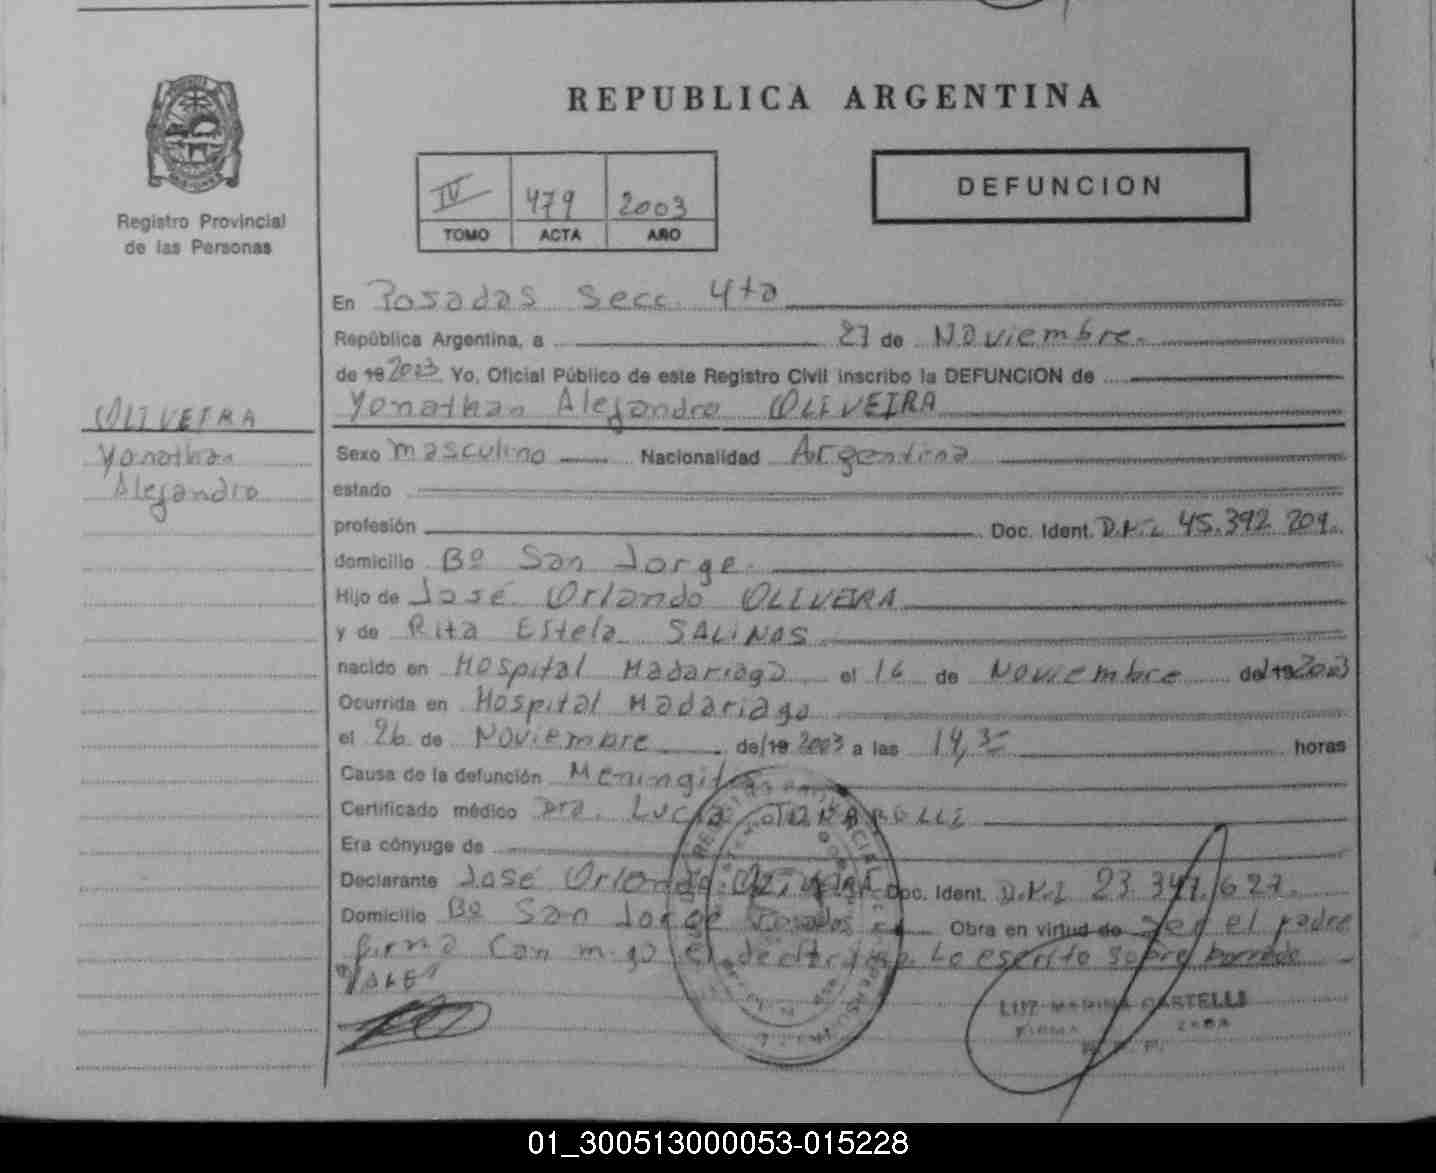 REPUBLICA ARGENTINA
Registro Provincial
de las Personas
IV 479 2003
TOMO ACTA AÑO
DEFUNCION
OLIVEIRA
Yonathan
Alejandro
En Posadas Secc. 4ta
República Argentina, a 27 de Noviembre.
de 19 2003 Yo, Oficial Público de este Registro Civil inscribo la DEFUNCION de
Yonathan Alejandro OLIVEIRA
Sexo masculino Nacionalidad Argentina
estado
profesión Doc. Ident. D.N.I. 45.392.209.
domicilio Bº San Jorge.
Hijo de José Orlando OLIVEIRA
y de Rita Estela SALINAS
nacido en Hospital Madariaga el 16 de Noviembre de 19 2003
Ocurrida en Hospital Madariaga
el 26 de Noviembre de 19 2003 a las horas
Causa de la defunción Meningitis
Certificado médico Dra. Lucia
Era cónyuge de
Declarante José Orlando OLIVEIRA Doc. Ident. D.N.I. 23.347.627.
Domicilio Bº San Jorge Posadas Obra en virtud de ser el padre
firma conmigo el declarante. Lo escrito sobre borrado
"VALE"
LUZ MARINA CASTELLI
FIRMA
01_300513000053-015228